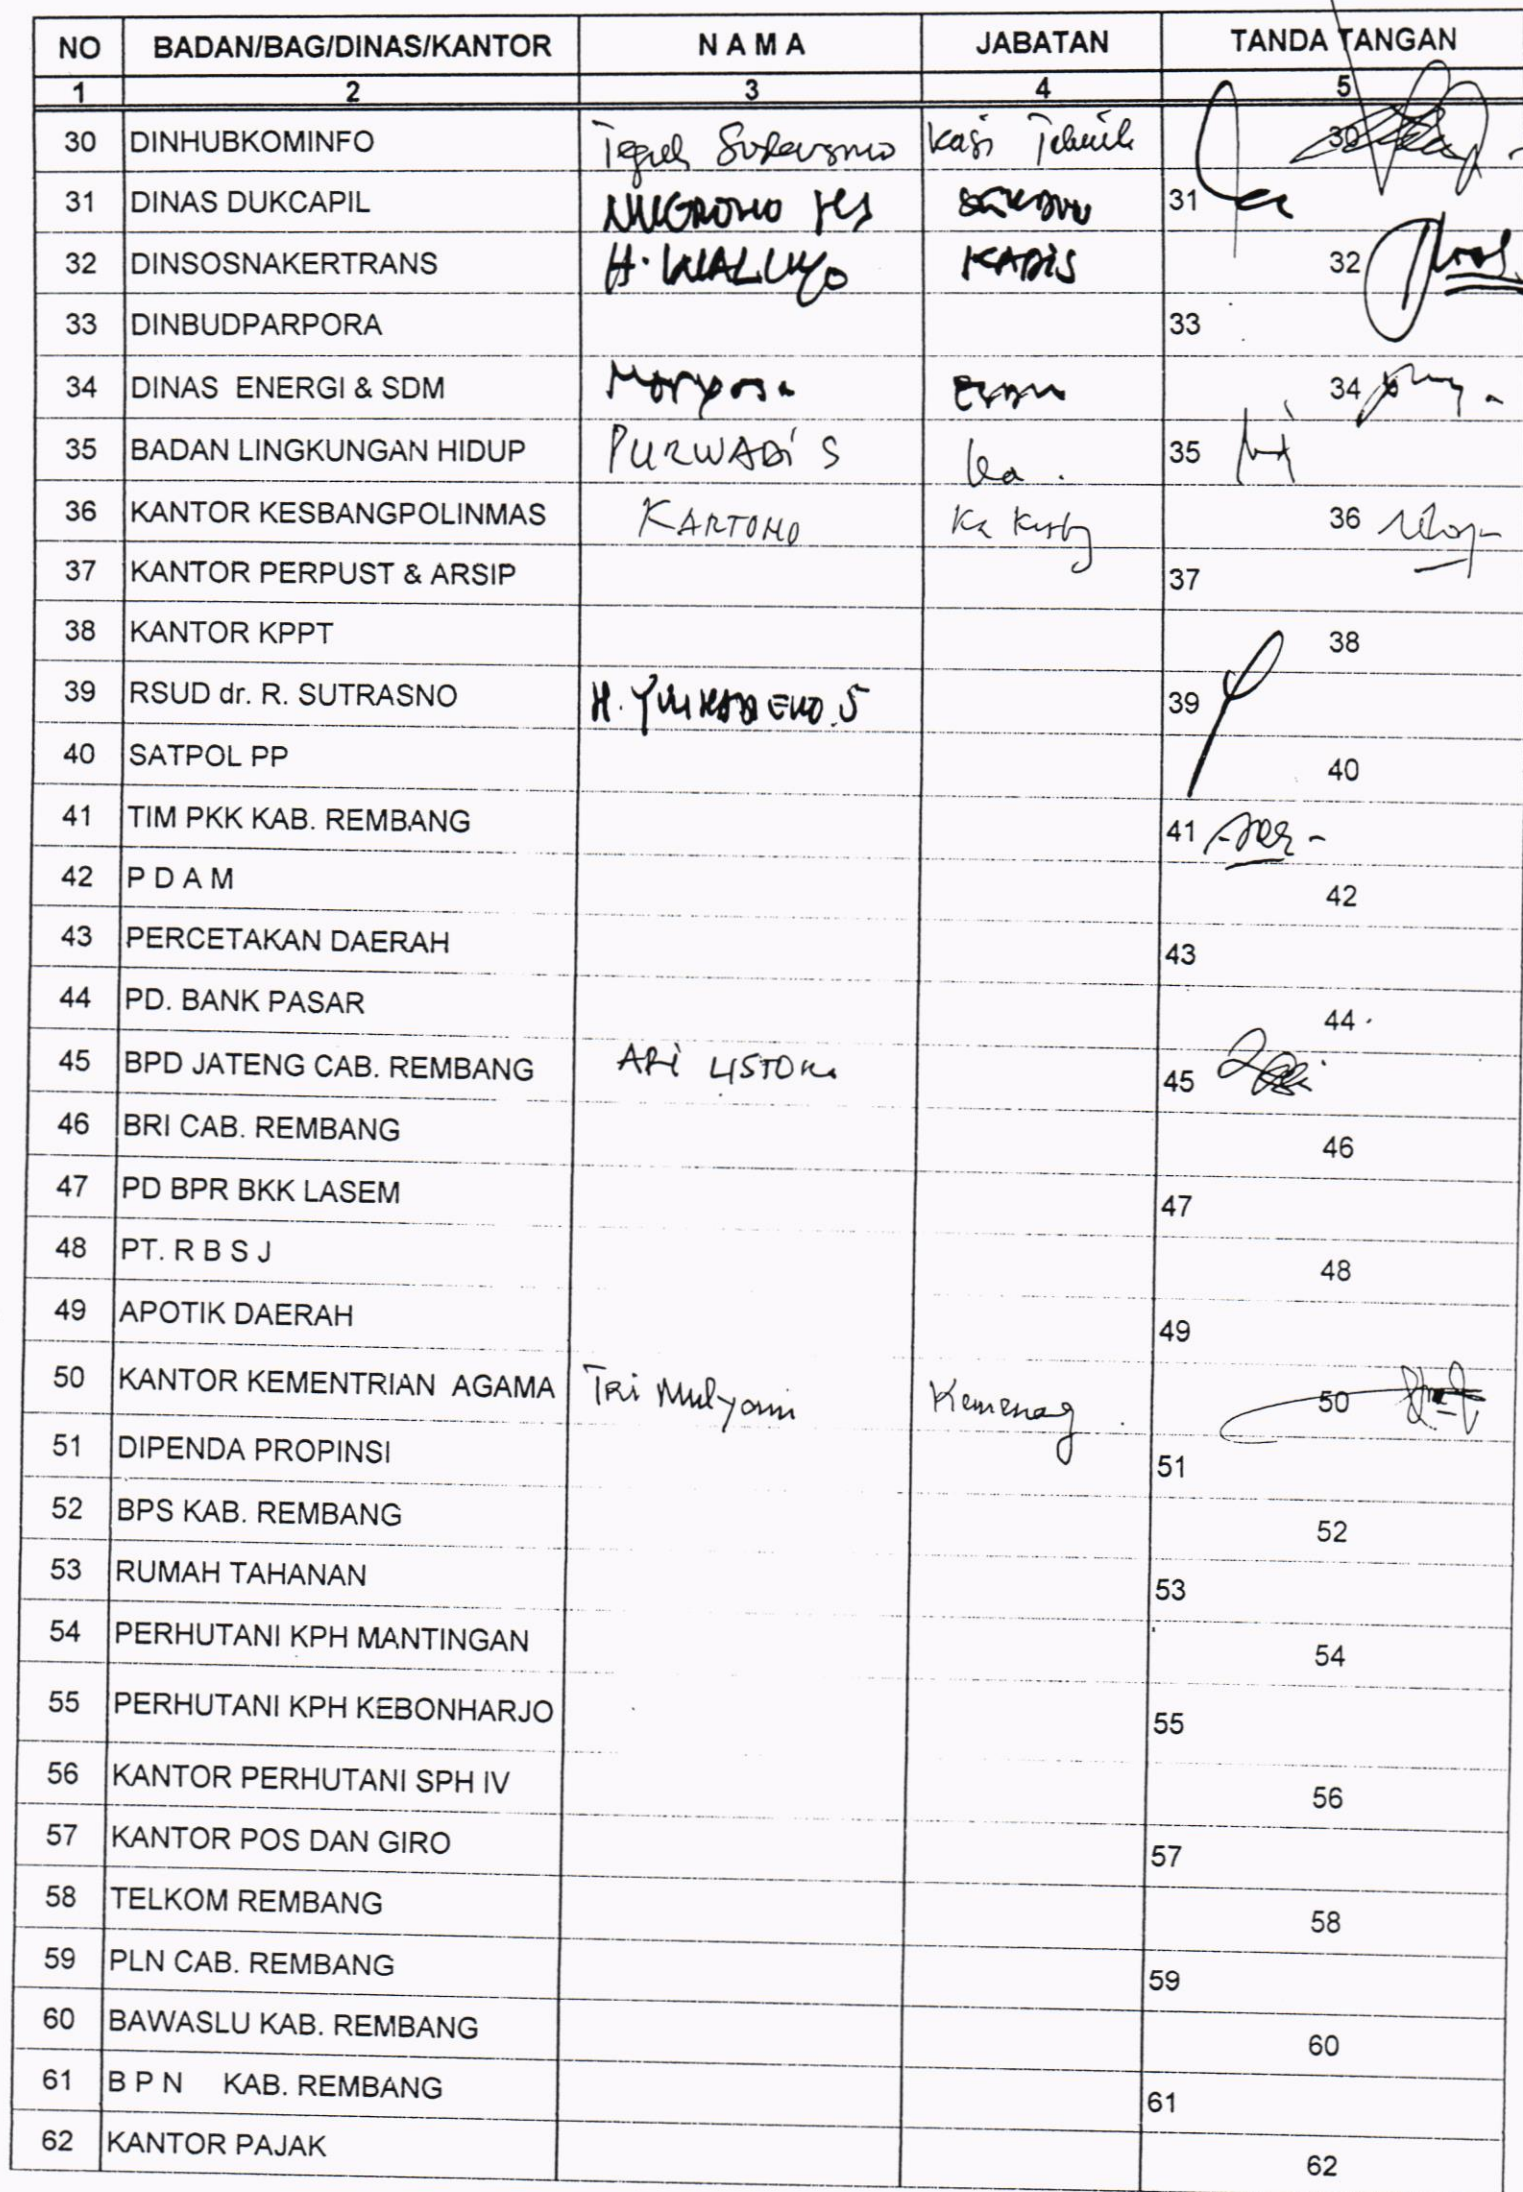 NO BADAN/BAG/DINAS/KANTOR N A M A JABATAN TANDA TANGAN
1 2 3 4 5
30 DINHUBKOMINFO Teguh Kasi 30
31 DINAS DUKCAPIL NUGROHO 31
32 DINSOSNAKERTRANS H. WALUYO KADIS 32
33 DINBUDPARPORA 33
34 DINAS ENERGI & SDM 34
35 BADAN LINGKUNGAN HIDUP PURWADI S Ka . 35
36 KANTOR KESBANGPOLINMAS KARTONO Ka 36
37 KANTOR PERPUST & ARSIP 37
38 KANTOR KPPT 38
39 RSUD dr. R. SUTRASNO H. 39
40 SATPOL PP 40
41 TIM PKK KAB. REMBANG 41
42 P D A M 42
43 PERCETAKAN DAERAH 43
44 PD. BANK PASAR 44
45 BPD JATENG CAB. REMBANG ARI 45
46 BRI CAB. REMBANG 46
47 PD BPR BKK LASEM 47
48 PT. R B S J 48
49 APOTIK DAERAH 49
50 KANTOR KEMENTRIAN AGAMA Tri Mulyani Kemenag 50
51 DIPENDA PROPINSI 51
52 BPS KAB. REMBANG 52
53 RUMAH TAHANAN 53
54 PERHUTANI KPH MANTINGAN 54
55 PERHUTANI KPH KEBONHARJO 55
56 KANTOR PERHUTANI SPH IV 56
57 KANTOR POS DAN GIRO 57
58 TELKOM REMBANG 58
59 PLN CAB. REMBANG 59
60 BAWASLU KAB. REMBANG 60
61 B P N KAB. REMBANG 61
62 KANTOR PAJAK 62